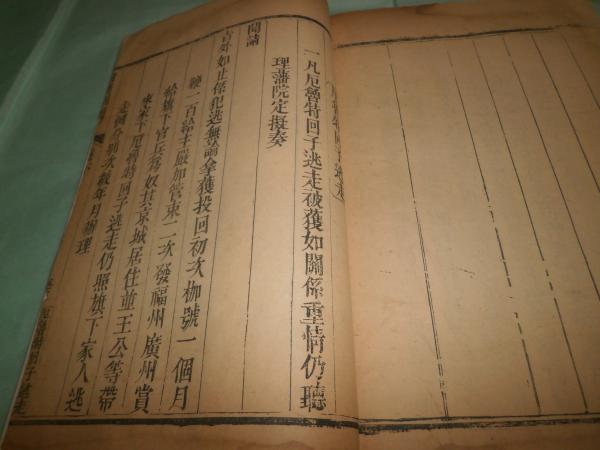 一凡厄魯特回子逃走被獲如關係重情仍聽
理藩院定擬奏
聞請
旨外如止係犯逃無論拿獲投回初次枷號一個月
鞭一百給主嚴加管束二次發福州廣州賞
給旗下官兵為奴其京城居住並王公等帶
來家下厄魯特回子逃走仍照旗下家人逃
走例分別次數年月辦理